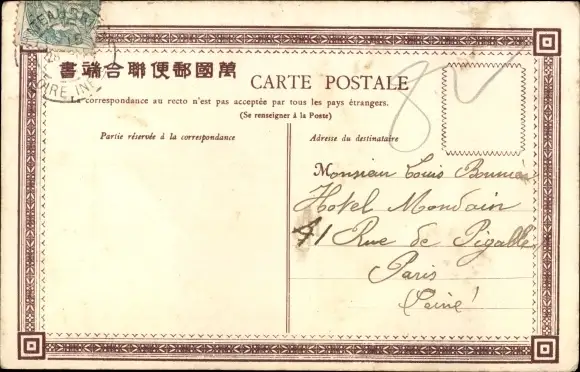 書端合聯便郵國萬
CARTE POSTALE
La correspondance au recto n'est pas acceptée par tous les pays étrangers.
(Se renseigner à la Poste)
Partie réservée à la correspondance
Adresse du destinataire
80
Monsieur Louis
Hotel Mondain
41 Rue de Pigalle
Paris
Seine